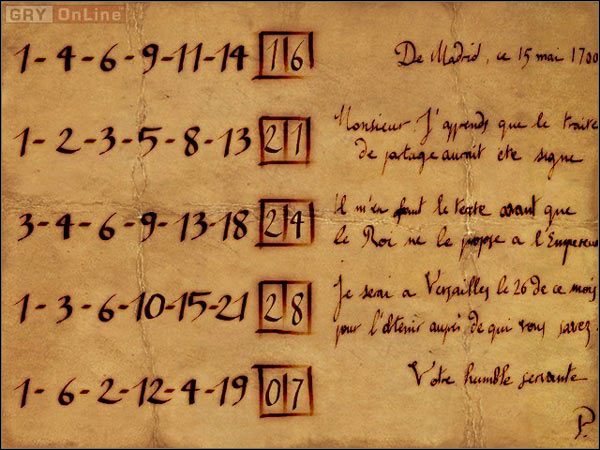 GRY OnLine
1-4-6-9-11-14 16
De Madrid, ce 15 mai 1700
1-2-3-5-8-13 21
Monsieur. J'apprends que le traite
de partage aurait ete signe
3-4-6-9-13-18 24
Il m'en faut le texte avant que
le Roi ne le propose a l'Empereur
1-3-6-10-15-21 28
Je serai a Versailles le 26 de ce mois
pour l'obtenir auprès de qui vous savez.
1-6-2-12-4-19 07
Votre humble servante
P.